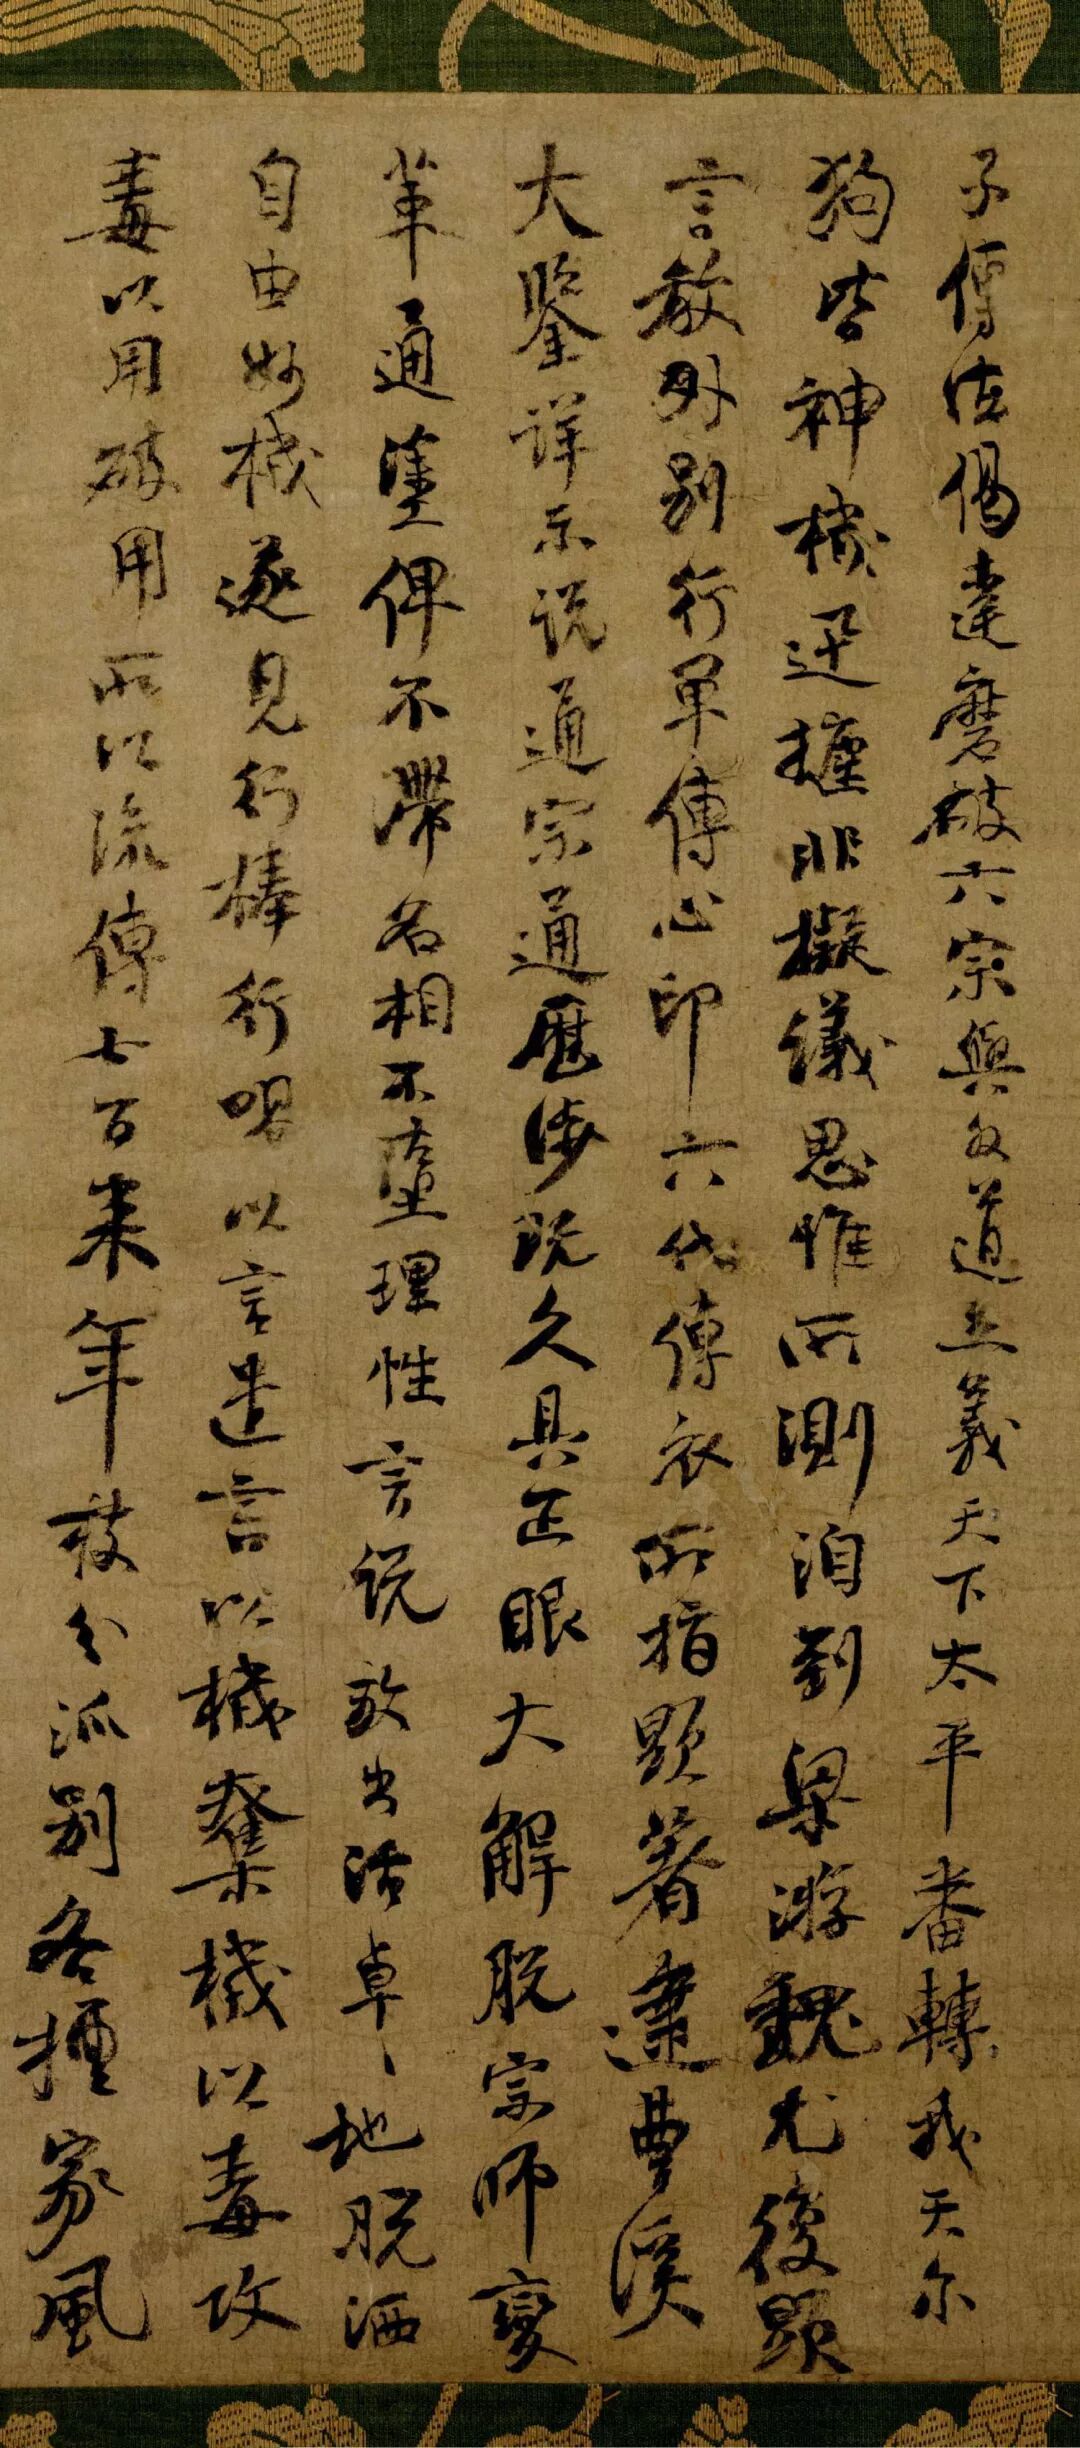 子傳法偈達磨破六宗與外道立義天下太平番轉我天尔
狗皆神機迅捷非擬議思惟所測洎到梁游魏尤復顯
言教外別行單傳心印六代傳衣所指顯著逮曹溪
大鑒詳示説通宗通歷涉既久具正眼大解脱宗師變
革通塗俾不滯名相不墮理性言説放出活卓〻地脱洒
自由妙機遂見行棒行喝以言遣言以機奪機以毒攻
毒以用破用所以流傳七百来年枝分派別各擅家風